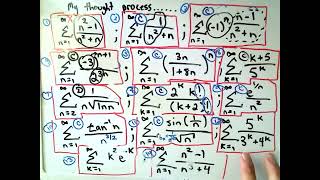 My thought process.....
① ∑ n=1 ∞ 2/(n²+n) ② ∑ n=1 ∞ Ⓒ 1/(n²+n) ③ ∑ n=1 ∞ Ⓒ (-1)ⁿ (n-1)/(n²+n)
∑ n=1 ∞ Ⓒ (-3)ⁿ⁺¹/2³ⁿ ∑ n=1 ∞ Ⓒ (3n/(1+8n))ⁿ ∑ k=1 ∞ Ⓒ (k+5)/5ᵏ
∑ n=2 ∞ Ⓓ 1/(n√ln n) ∑ k=1 ∞ Ⓒ 2ᵏ k!/(k+2)! ∑ n=1 ∞ Ⓒ e^(1/n)/n²
∑ n=1 ∞ Ⓒ tan⁻¹n/n^(3/2) ∑ n=1 ∞ Ⓒ sin(1/n)/√n ∑ k=1 ∞ 5ᵏ/(3ᵏ+4ᵏ)
∑ k=1 ∞ k² e⁻ᵏ ∑ n=1 ∞ (n²-1)/(n³+4)